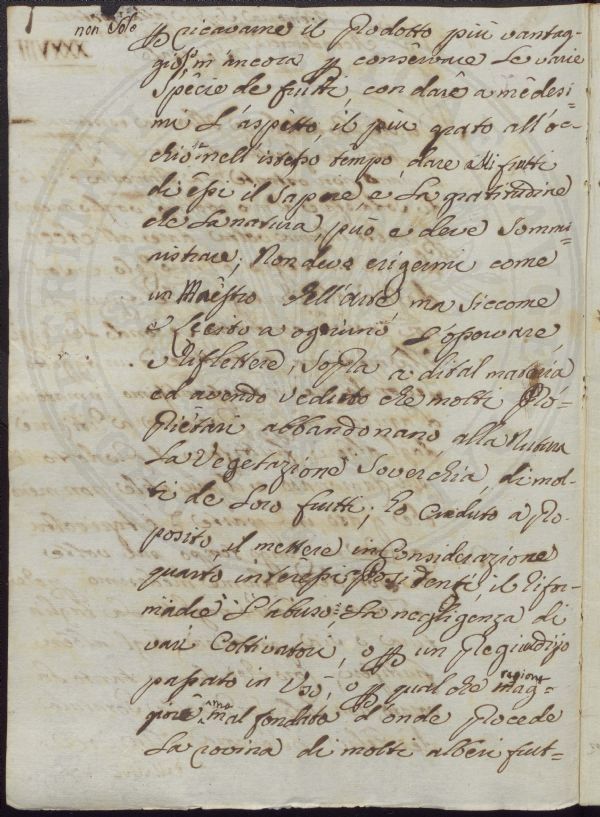 non solo
p ricavarne il Prodotto più vantag=
gioso, m'ancora p consêrvare Le varie
Spêcie de frutti, con darê a mêdesi=
mi L'aspêtto, il più grato all'oc=
chio, e nell'istesso tempo, dare alli frutti
di êssi il Sapore e La gratitudine
che La natura, può e deve Sommi=
nistrare; Non devo erigermi come
un Maêstro dell'arte, ma siccome
è Lêcito a ogniuno L'osservare,
e Riflettere, sopra a di tal materia
ed avendo Veduto che molti Prô=
Priêtari abbandonano, alla Natura
La Vegetazione Soverchia, di mol=
ti de Loro frutti; ho Creduto a Pro=
posito, il mettere in Considerazione
quanto interessi i Possidenti, il Rifor=
mare L'abuso, e La negligenza di
vari Coltivatori, o p un Pregiudizio
passato in Uso, o p qual che ragione mag=
giore ma mal fondata d'onde Procede
La rovina di molti alberi frut=